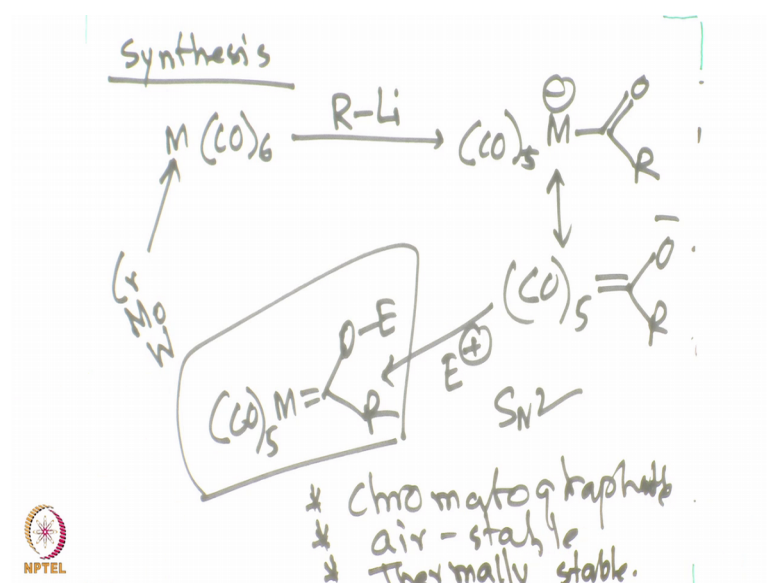 Synthesis
M (CO)6 R-Li (CO)5 M O R
⊖
Cr
Mo
W
(CO)5 = O- R
E⊕
(CO)5 M = O-E R
SN2
* Chromatograph
* air-stable
* Thermally stable.
NPTEL